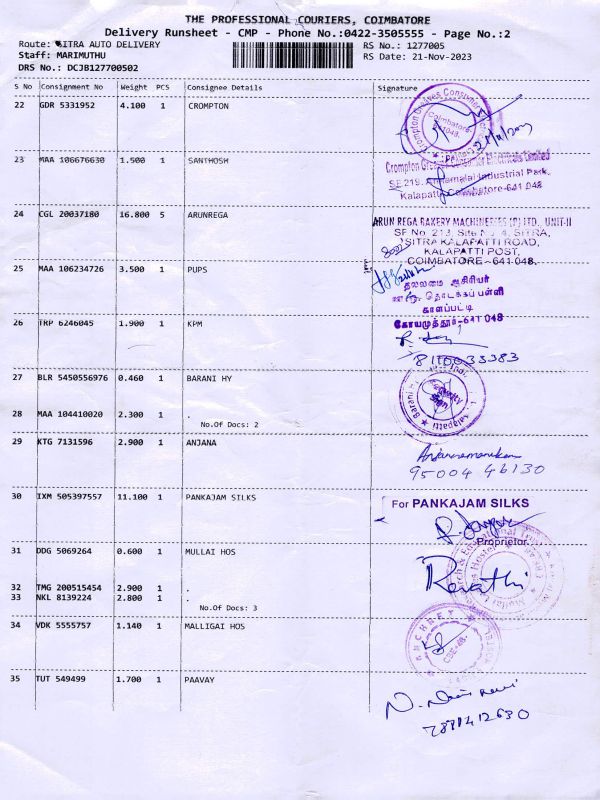 THE PROFESSIONAL COURIERS, COIMBATORE
Delivery Runsheet - CMP - Phone No.:0422-3505555 - Page No.:2
Route: SITRA AUTO DELIVERY RS No.: 1277005
Staff: MARIMUTHU RS Date: 21-Nov-2023
DRS No.: DCJB127700502
S No Consignment No Weight PCS Consignee Details Signature
22 GDR 5331952 4.100 1 CROMPTON
Crompton Greaves Consumer
Coimbatore-
641048.
23 MAA 106676630 1.500 1 SANTHOSH
Crompton Greaves Consumer Electricals Limited
SF219, Annamalai Industrial Park,
Kalapatti, Coimbatore-641 048
24 CGL 20037180 16.800 5 ARUNREGA
ARUN REGA BAKERY MACHINERIES (P) LTD., UNIT-II
SF No. 213, Site No. 4, SITRA,
SITRA KALAPATTI ROAD,
KALAPATTI POST,
COIMBATORE - 641 048.
25 MAA 106234726 3.500 1 PUPS
தலைமை ஆசிரியர்
தொடக்கப்பள்ளி
காளப்பட்டி
கோயமுத்தூர்-641 048
26 TRP 6246045 1.900 1 KPM
27 BLR 5450556976 0.460 1 BARANI HY
Security
28 MAA 104410020 2.300 1 .
No.Of Docs: 2
29 KTG 7131596 2.900 1 ANJANA
95004 46130
30 IXM 505397557 11.100 1 PANKAJAM SILKS
For PANKAJAM SILKS
Proprietor.
31 DDG 5069264 0.600 1 MULLAI HOS
Revathi
32 TMG 200515454 2.900 1 .
33 NKL 8139224 2.800 1 .
No.Of Docs: 3
34 VDK 5555757 1.140 1 MALLIGAI HOS
CBE-48.
35 TUT 549499 1.700 1 PAAVAY